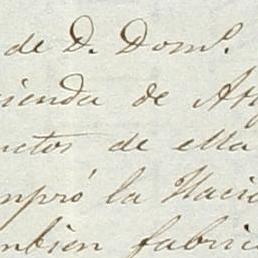 de D. Dom.
cienda de
uctos de ella
mpró la Haci
mbien fabric